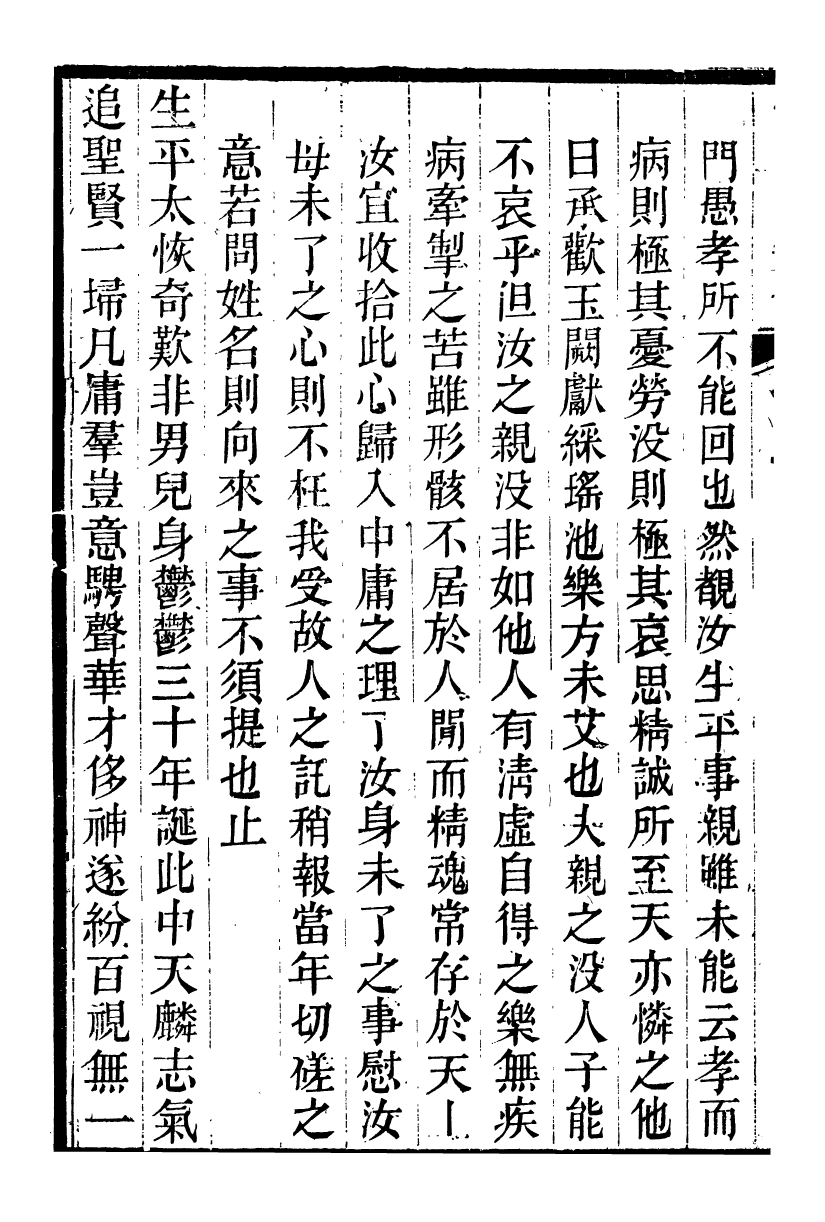 門愚孝所不能回也然覩汝生平事親雖未能云孝而
病則極其憂勞没則極其哀思精誠所至天亦憐之他
日承歡玉闕獻綵瑤池樂方未艾也夫親之没人子能
不哀乎但汝之親没非如他人有淸虛自得之樂無疾
病牽掣之苦雖形骸不居於人閒而精魂常存於天上
汝宜收拾此心歸入中庸之理了汝身未了之事慰汝
母未了之心則不枉我受故人之託稍報當年切磋之
意若問姓名則向來之事不須提也止
生平太恢奇歎非男兒身鬱鬱三十年誕此中天麟志氣
追聖賢一埽凡庸羣豈意騁聲華才侈神遂紛百視無一